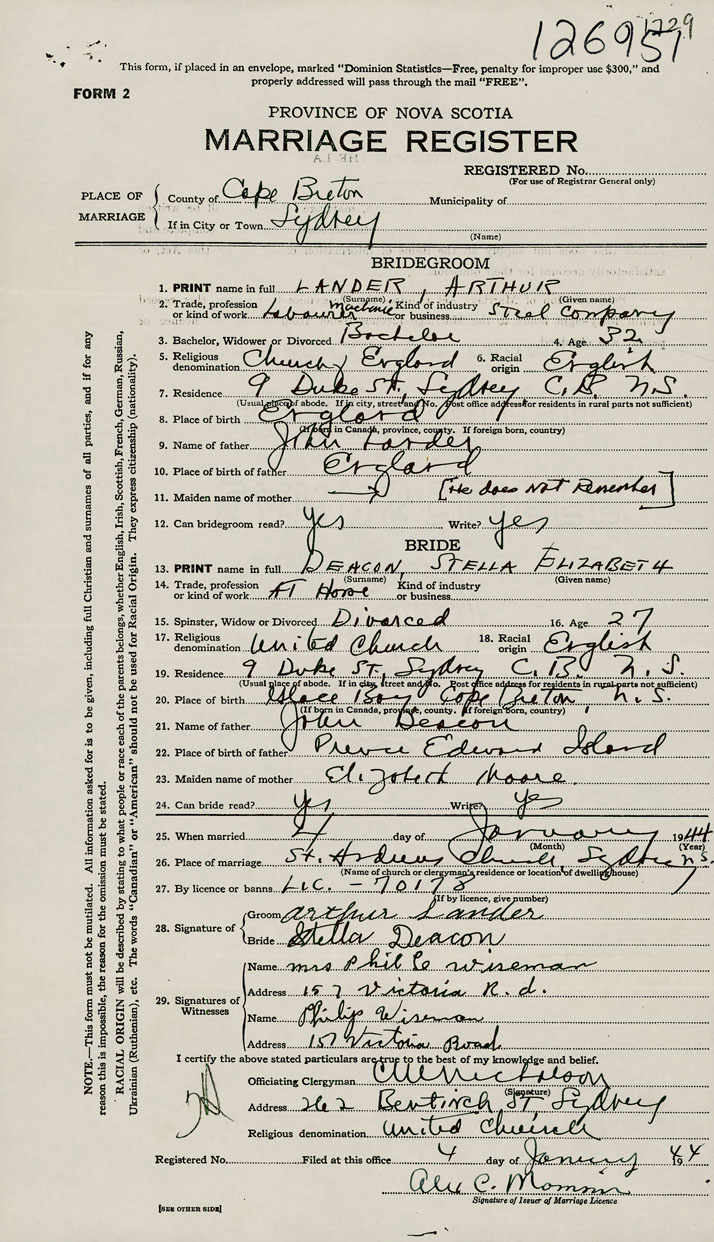 126957 1729
This form, if placed in an envelope, marked "Dominion Statistics—Free, penalty for improper use $300," and
properly addressed will pass through the mail "FREE".
FORM 2
PROVINCE OF NOVA SCOTIA
MARRIAGE REGISTER
REGISTERED No.
(For use of Registrar General only)
PLACE OF MARRIAGE
County of Cape Breton Municipality of
If in City or Town Sydney
(Name)
BRIDEGROOM
1. PRINT name in full LANDER, ARTHUR
(Surname) (Given name)
2. Trade, profession or kind of work Labourer Machine Kind of industry or business Steel Company
3. Bachelor, Widower or Divorced Bachelor 4. Age 32
5. Religious denomination Church of England 6. Racial origin English
7. Residence 9 Duke St., Sydney C.B. N.S.
(Usual place of abode. If in city, street and No. Post office address for residents in rural parts not sufficient)
8. Place of birth England
(If born in Canada, province, county. If foreign born, country)
9. Name of father John Lander
10. Place of birth of father England
11. Maiden name of mother [He does Not Remember]
12. Can bridegroom read? Yes Write? Yes
BRIDE
13. PRINT name in full DEACON, STELLA ELIZABETH
(Surname) (Given name)
14. Trade, profession or kind of work AT Home Kind of industry or business
15. Spinster, Widow or Divorced Divorced 16. Age 27
17. Religious denomination United Church 18. Racial origin English
19. Residence 9 Duke St., Sydney C.B. N.S.
(Usual place of abode. If in city, street and No. Post office address for residents in rural parts not sufficient)
20. Place of birth Glace Bay Cape Breton, N.S.
(If born in Canada, province, county. If foreign born, country)
21. Name of father John Deacon
22. Place of birth of father Prince Edward Island
23. Maiden name of mother Elizabeth Moore
24. Can bride read? Yes Write? Yes
25. When married 4 day of January 1944
(Month) (Year)
26. Place of marriage St. Andrews Church, Sydney N.S.
(Name of church or clergyman's residence or location of dwelling house)
27. By licence or banns Lic. - 70178
(If by licence, give number)
28. Signature of
Groom Arthur Lander
Bride Stella Deacon
29. Signatures of Witnesses
Name Mrs Phil Wiseman
Address 157 Victoria R.d.
Name Philip Wiseman
Address 157 Victoria Road
I certify the above stated particulars are true to the best of my knowledge and belief.
Officiating Clergyman Nicholson
(Signature)
Address 262 Bentinck St Sydney
Religious denomination United Church
Registered No. Filed at this office 4 day of January 1944
Alex C.
Signature of Issuer of Marriage Licence
[SEE OTHER SIDE]
NOTE.—This form must not be mutilated. All information asked for is to be given, including full Christian and surnames of all parties, and if for any
reason this is impossible, the reason for the omission must be stated.
RACIAL ORIGIN will be described by stating to what people or race each of the parents belongs, whether English, Irish, Scottish, French, German, Russian,
Ukrainian (Ruthenian), etc. The words "Canadian" or "American" should not be used for Racial Origin. They express citizenship (nationality).